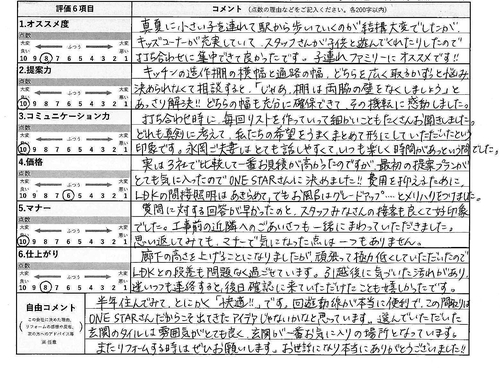 評価6項目
コメント (点数の理由などをご記入ください。各200字以内)
1.オススメ度
点数
大変良い ふつう 大変悪い
10 9 8 7 6 5 4 3 2 1
真夏に小さい子を連れて駅から歩いていくのが結構大変でしたが、
キッズコーナーが充実していて、スタッフさんが子供と遊んでくれたりしたので
打ち合わせに集中できて良かったです。子連れファミリーにオススメです!!
2.提案力
点数
大変良い ふつう 大変悪い
10 9 8 7 6 5 4 3 2 1
キッチンの造作棚の横幅と通路の幅、どちらを広く取るかずっと悩み
決められなくて相談すると、「じゃあ、棚は両脇の壁をなくしましょう」と
あっさり解決!! どちらの幅も充分に確保できて、その機転に感動しました。
3.コミュニケーション力
点数
大変良い ふつう 大変悪い
10 9 8 7 6 5 4 3 2 1
打ち合わせ時に、毎回リストを作っていって細かいこともたくさんお聞きしました。
どれも真剣に考えて、私たちの希望をうまくまとめて形にしていただいたという
印象です。永岡ご夫妻はとても話しやすくて、いつも楽しく時間があっという間でした。
4.価格
点数
大変良い ふつう 大変悪い
10 9 8 7 6 5 4 3 2 1
実は3社で比較して一番お見積が高かったのですが、最初の提案プランが
とても気に入ったのでONE STARさんに決めました!! 費用を抑えるために、
LDKの間接照明はあきらめて、でもお風呂はグレードアップ…とメリハリをつけました。
5.マナー
点数
大変良い ふつう 大変悪い
10 9 8 7 6 5 4 3 2 1
質問に対する回答が早かったのと、スタッフみなさんの接客も良くて好印象
でした。工事前の近隣へのごあいさつも一緒にまわっていただきました。
思い返してみても、マナーで気になった点は一つもありません。
6.仕上がり
点数
大変良い ふつう 大変悪い
10 9 8 7 6 5 4 3 2 1
廊下の高さを上げることになりましたが、頑張って極力低くしていただいたので
LDKとの段差も問題なく過ごせています。引越後に気づいた汚れがあり、
遅いつも連絡すると、後日確認に来ていただけたことも嬉しかったです。
自由コメント
この会社に決めた理由、
リフォームの感想や反省、
次の方へのアドバイス等
※任意
半年住んでみて、とにかく「快適!!」です。回遊動線が本当に便利で、この間取りは
ONE STARさんだからこそ出てきたアイデアじゃないかなと思っています。選んでいただいた
玄関のタイルは雰囲気がとても良く、玄関が一番お気に入りの場所となっています。
またリフォームする時はぜひお願いします。お世話になり本当にありがとうございました!!